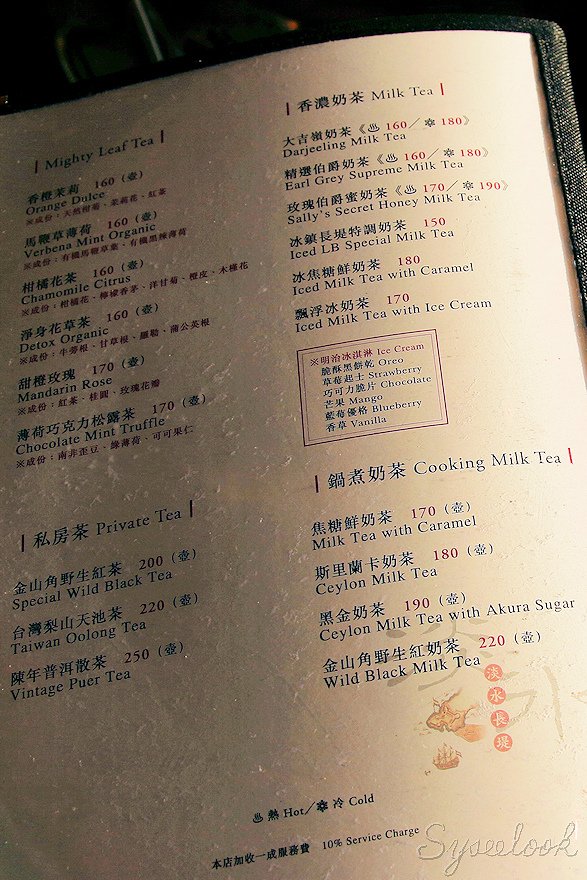 | Mighty Leaf Tea |
香橙茉莉 160（壺）
Orange Dulce
※成份：天然柑菊、茉莉花、紅茶
馬鞭草薄荷 160（壺）
Verbena Mint Organic
※成份：有機馬鞭草葉、有機黑辣薄荷
柑橘花茶 160（壺）
Chamomile Citrus
※成份：柑橘花、檸檬香茅、洋甘菊、橙皮、木槿花
淨身花草茶 160（壺）
Detox Organic
※成份：牛蒡根、甘草根、羅勒、蒲公英根
甜橙玫瑰 170（壺）
Mandarin Rose
※成份：紅茶、桂圓、玫瑰花瓣
薄荷巧克力松露茶 170（壺）
Chocolate Mint Truffle
※成份：南非歪豆、綠薄荷、可可果仁
| 私房茶 Private Tea |
金山角野生紅茶 200（壺）
Special Wild Black Tea
台灣梨山天池茶 220（壺）
Taiwan Oolong Tea
陳年普洱散茶 250（壺）
Vintage Puer Tea
| 香濃奶茶 Milk Tea |
大吉嶺奶茶《♨ 160／❄ 180》
Darjeeling Milk Tea
精選伯爵奶茶《♨ 160／❄ 180》
Earl Grey Supreme Milk Tea
玫瑰伯爵蜜奶茶《♨ 170／❄ 190》
Sally's Secret Honey Milk Tea
冰鎮長堤特調奶茶 150
Iced LB Special Milk Tea
冰焦糖鮮奶茶 180
Iced Milk Tea with Caramel
飄浮冰奶茶 170
Iced Milk Tea with Ice Cream
※明治冰淇淋 Ice Cream
脆酥黑餅乾 Oreo
草莓起士 Strawberry
巧可力脆片 Chocolate
芒果 Mango
藍莓優格 Blueberry
香草 Vanilla
| 鍋煮奶茶 Cooking Milk Tea |
焦糖鮮奶茶 170（壺）
Milk Tea with Caramel
斯里蘭卡奶茶 180（壺）
Ceylon Milk Tea
黑金奶茶 190（壺）
Ceylon Milk Tea with Akura Sugar
金山角野生紅奶茶 220（壺）
Wild Black Milk Tea
淡水長堤
♨ 熱 Hot／❄ 冷 Cold
本店加收一成服務費 10% Service Charge
Syseelook